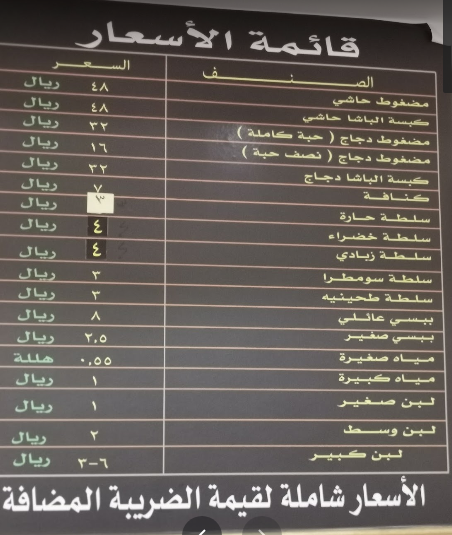 قائمة الأسعار
الصنف السعر
مضغوط حاشي ٤٨ ريال
كبسة الباشا حاشي ٤٨ ريال
مضغوط دجاج ( حبة كاملة ) ٣٢ ريال
مضغوط دجاج ( نصف حبة ) ١٦ ريال
كبسة الباشا دجاج ٣٢ ريال
كنافة ٧ ريال
سلطة حارة ٣ ريال
سلطة خضراء ٤ ريال
سلطة زبادي ٤ ريال
سلطة سومطرا ٣ ريال
سلطة طحينيه ٣ ريال
ببسي عائلي ٨ ريال
ببسي صغير ٢.٥ ريال
مياه صغيرة ٠.٥٥ هللة
مياه كبيرة ١ ريال
لبن صغير ١ ريال
لبن وسط ٢ ريال
لبن كبير ٦-٣ ريال
الأسعار شاملة لقيمة الضريبة المضافة